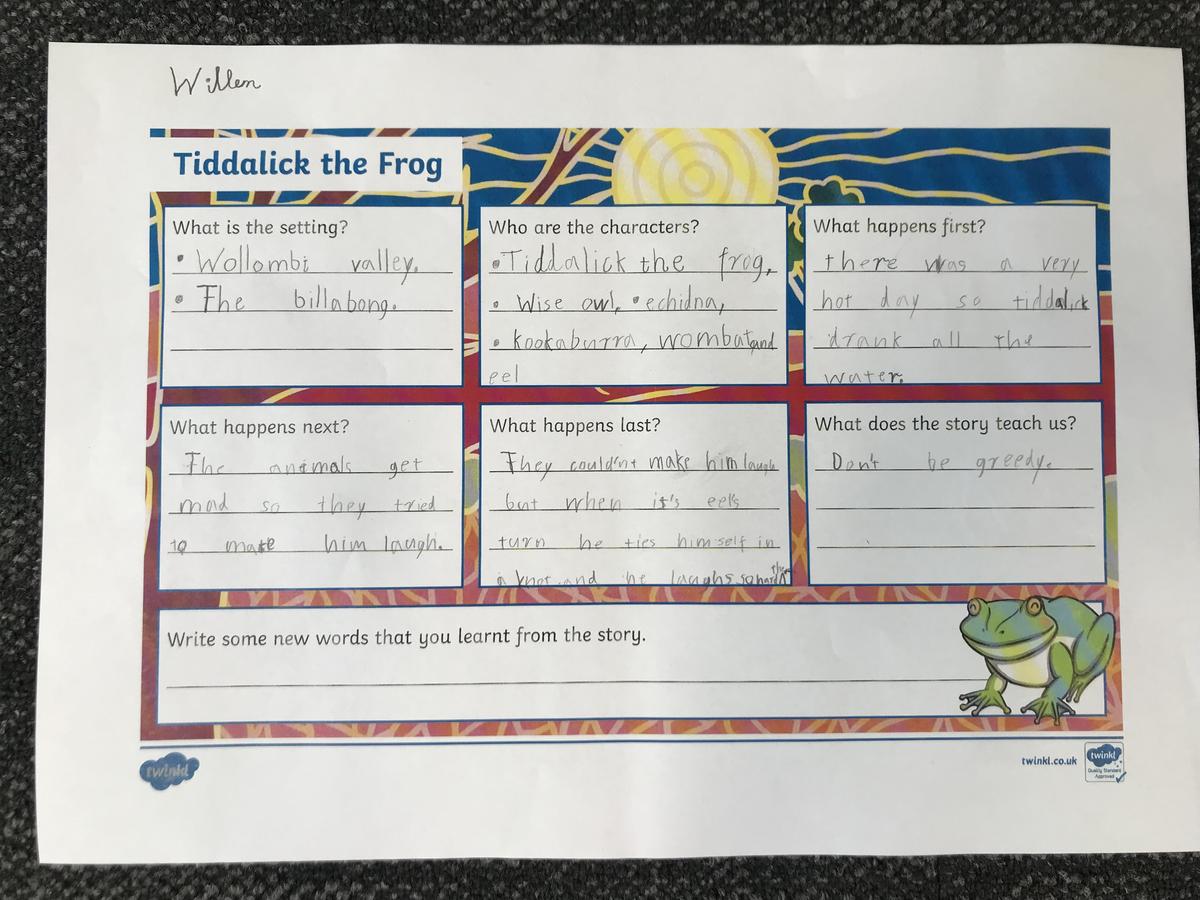 Willem
Tiddalick the Frog
What is the setting?
• Wollombi valley.
• The billabong.
Who are the characters?
• Tiddalick the frog,
• Wise owl, • echidna,
• kookaburra, wombat and
eel
What happens first?
there was a very
hot day so tiddalick
drank all the
water.
What happens next?
The animals get
mad so they tried
to make him laugh.
What happens last?
They couldn't make him laugh
but when it's eels
turn he ties himself in
a knot and he laughs so hard
What does the story teach us?
Don't be greedy.
Write some new words that you learnt from the story.
twinkl
twinkl.co.uk
twinkl
Quality Standard
Approved